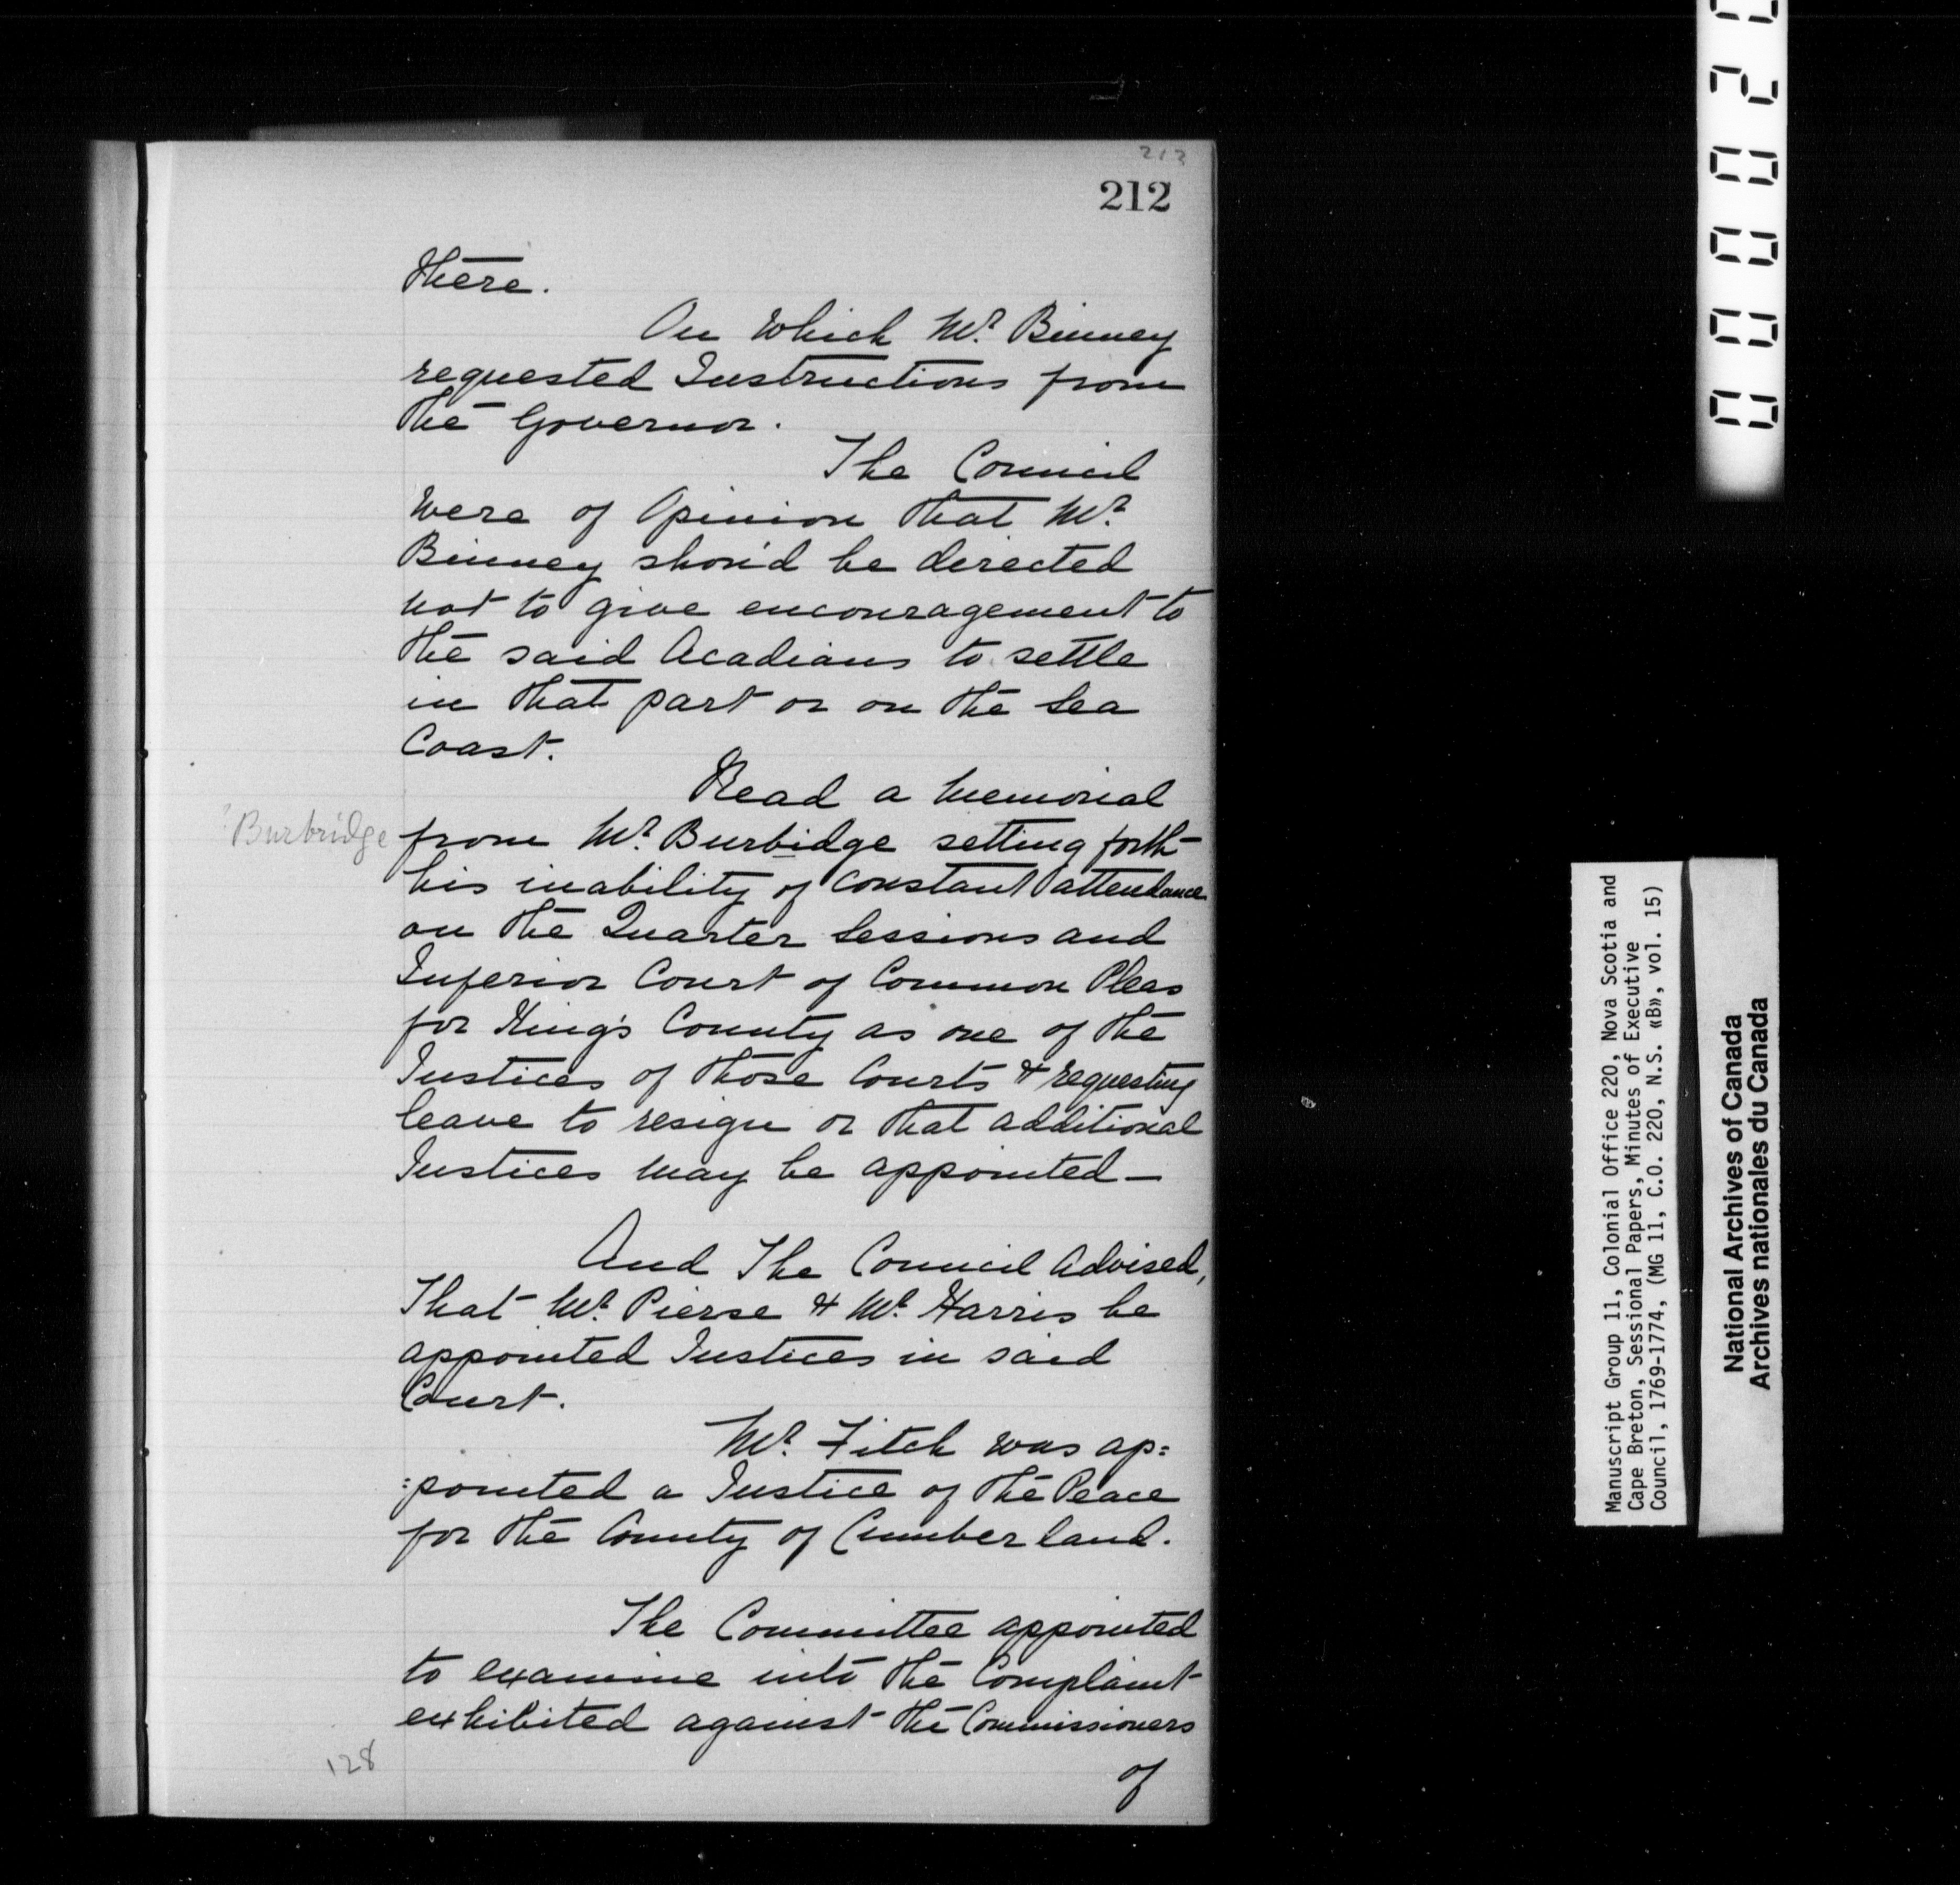 213
212
there.
On which Mr. Binney
requested Instructions from
the Governor.
The Council
were of Opinion that Mr.
Binney shou'd be directed
not to give encouragement to
the said Acadians to settle
in that part or on the Sea
Coast.
Read a Memorial
? Burbridge
from Mr. Burbidge setting forth
his inability of constant attendance
on the Quarter Sessions and
Inferior Court of Common Pleas
for King's County as one of the
Justices of those Courts & requesting
leave to resign or that additional
Justices may be appointed —
And The Council advised,
That Mr. Pierse & Mr. Harris be
appointed Justices in said
Court.
Mr. Fitch was ap=
=pointed a Justice of the Peace
for the County of Cumberland.
The Committee appointed
to examine into the Complaint
exhibited against the Commissioners
of
128
Manuscript Group 11, Colonial Office 220, Nova Scotia and
Cape Breton, Sessional Papers, Minutes of Executive
Council, 1769-1774, (MG 11, C.O. 220, N.S. «B», vol. 15)
National Archives of Canada
Archives nationales du Canada